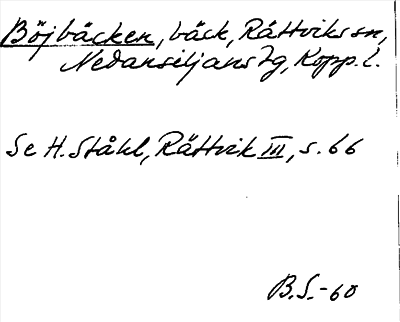 Böjbäcken, bäck, Rättviks sn,
Nedansiljans tg, Kopp. l.
Se H. Ståhl, Rättvik III, s. 66
B.S.-60